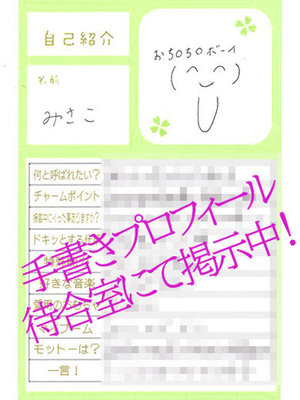 自己紹介
おちろちろボーイ
名前
みさこ
何と呼ばれたい?
チャームポイント
ドキッとするセ
好きな音楽
マイブーム
モットーは?
一言!
手書きプロフィール
待合室にて掲示中!